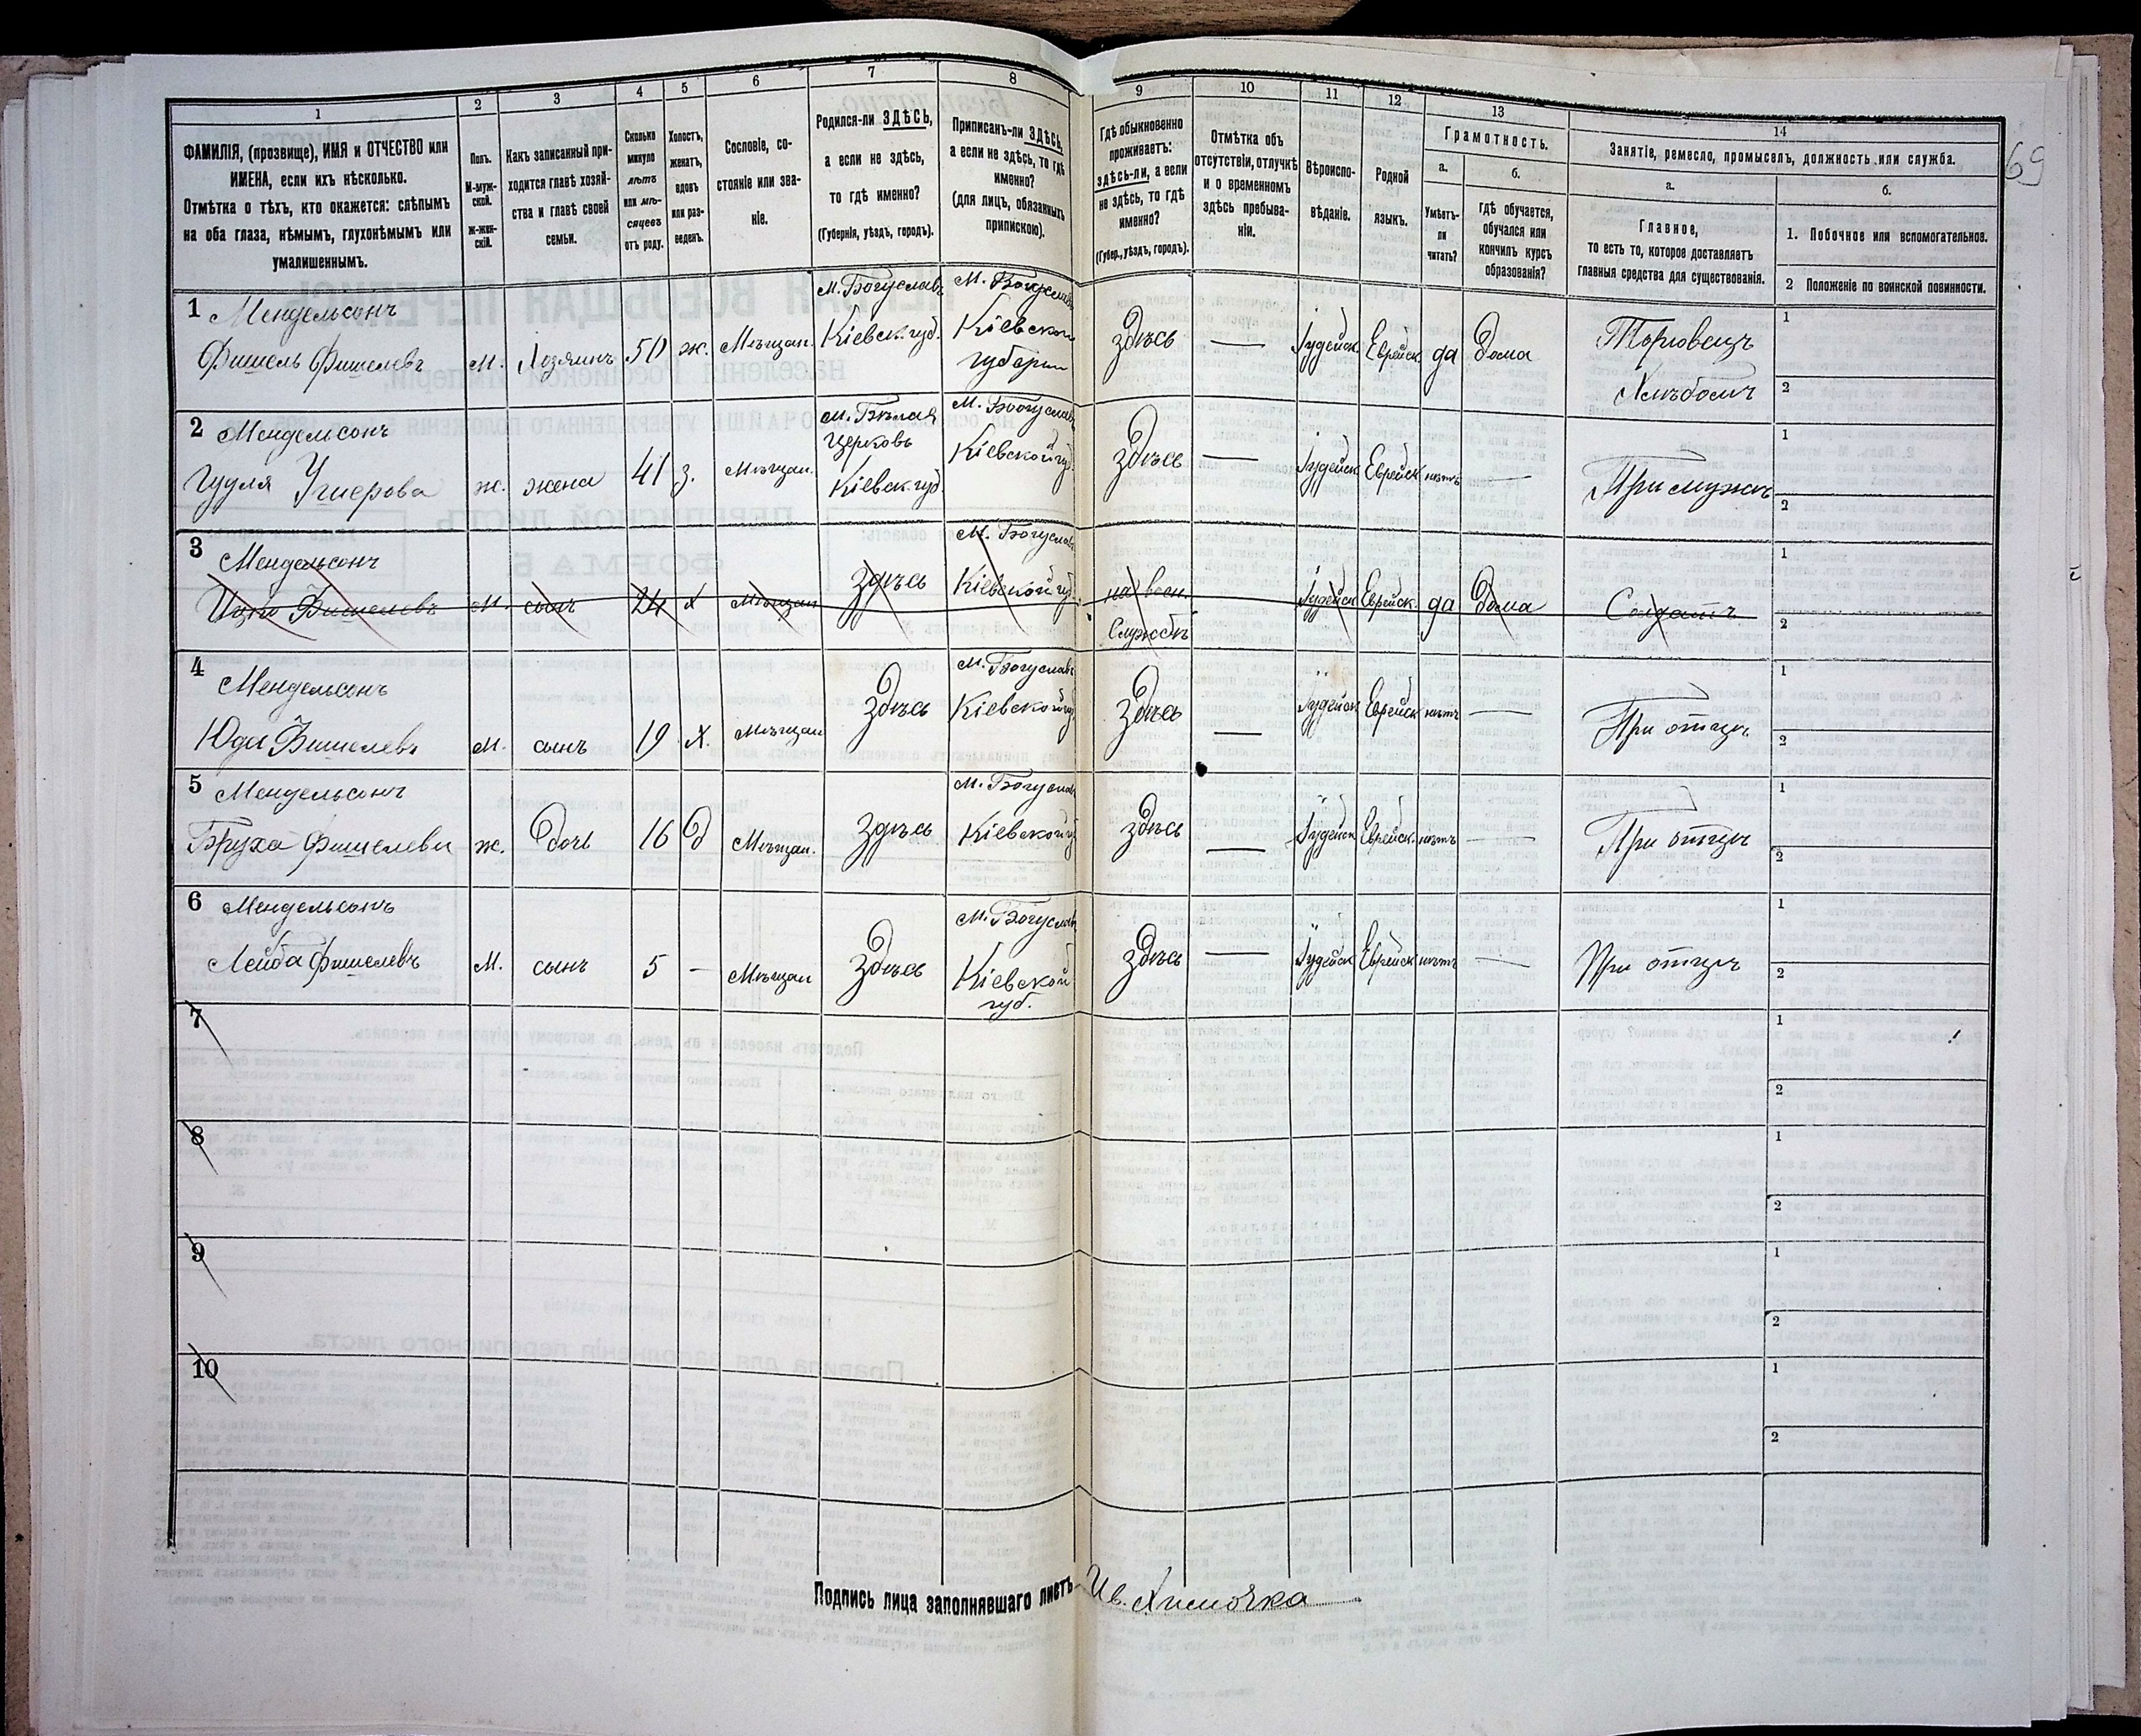 69
1
2
3
4
5
6
7
8
9
10
11
12
13
14
ФАМИЛІЯ, (прозвище), ИМЯ и ОТЧЕСТВО или
ИМЕНА, если ихъ нѣсколько.
Отмѣтка о тѣхъ, кто окажется: слѣпымъ
на оба глаза, нѣмымъ, глухонѣмымъ или
умалишеннымъ.
Полъ.
М-муж-
ской.
ж-жен-
скій.
Какъ записанный при-
ходится главѣ хозяй-
ства и главѣ своей
семьи.
Сколько
минуло
лѣтъ
или мѣ-
сяцевъ
отъ роду.
Холостъ,
женатъ,
вдовъ
или раз-
веденъ.
Сословіе, со-
стояніе или зва-
ніе.
Родился-ли ЗДѢСЬ,
а если не здѣсь,
то гдѣ именно?
(Губернія, уѣздъ, городъ).
Приписанъ-ли ЗДѢСЬ,
а если не здѣсь, то гдѣ
именно?
(для лицъ, обязанныхъ
припискою).
Гдѣ обыкновенно
проживаетъ:
здѣсь-ли, а если
не здѣсь, то гдѣ
именно?
(Губер., уѣздъ, городъ).
Отмѣтка объ
отсутствіи, отлучкѣ
и о временномъ
здѣсь пребыва-
ніи.
Вѣроиспо-
вѣданіе.
Родной
языкъ.
Грамотность.
а.
Умѣетъ-
ли
читать?
б.
гдѣ обучается,
обучался или
кончилъ курсъ
образованія?
Занятіе, ремесло, промыселъ, должность или служба.
а.
Главное,
то есть то, которое доставляетъ
главныя средства для существованія.
б.
1. Побочное или вспомогательное.
2 Положеніе по воинской повинности.
1 Мендельсонъ
Фишель Фишелевъ
М.
Хозяинъ
50
ж.
Мѣщан.
М. Богуславъ
Кіевск. губ.
М. Богуславъ
Кіевской
губерніи
Здѣсь
—
Іудейск
Еврейск
да
дома
Торговецъ
Хлѣбомъ
1
2
2 Мендельсонъ
Гудля
ж.
жена
41
з.
Мѣщан.
м. Бѣлая
Церковь
Кіевск. губ.
М. Богуславъ
Кіевской губ.
Здѣсь
—
Іудейск
Еврейск
нѣтъ
—
При мужѣ
1
2
3 Мендельсонъ
Фишелевъ
М.
сынъ
24
х
Мѣщан
Здѣсь
М. Богуславъ
Кіевской губ.
на воен.
Службѣ
Іудейск
Еврейск.
да
дома
Солдатъ
1
2
4 Мендельсонъ
Юда Фишелевъ
М.
сынъ
19
х.
Мѣщан
Здѣсь
М. Богуславъ
Кіевской губ
Здѣсь
—
Іудейск
Еврейск
нѣтъ
—
При отцѣ
1
2
5 Мендельсонъ
Бруха Фишелева
ж.
дочь
16
д
Мѣщан.
Здѣсь
М. Богуславъ
Кіевской губ
Здѣсь
—
Іудейск
Еврейск.
нѣтъ
—
При отцѣ
1
2
6 Мендельсонъ
Лейба Фишелевъ
М.
сынъ
5
—
Мѣщан
Здѣсь
М. Богуславъ
Кіевской
губ.
Здѣсь
—
Іудейск
Еврейск
нѣтъ
—
При отцѣ
1
2
7
1
2
8
1
2
9
1
2
10
1
2
Подпись лица заполнявшаго листъ Ив.